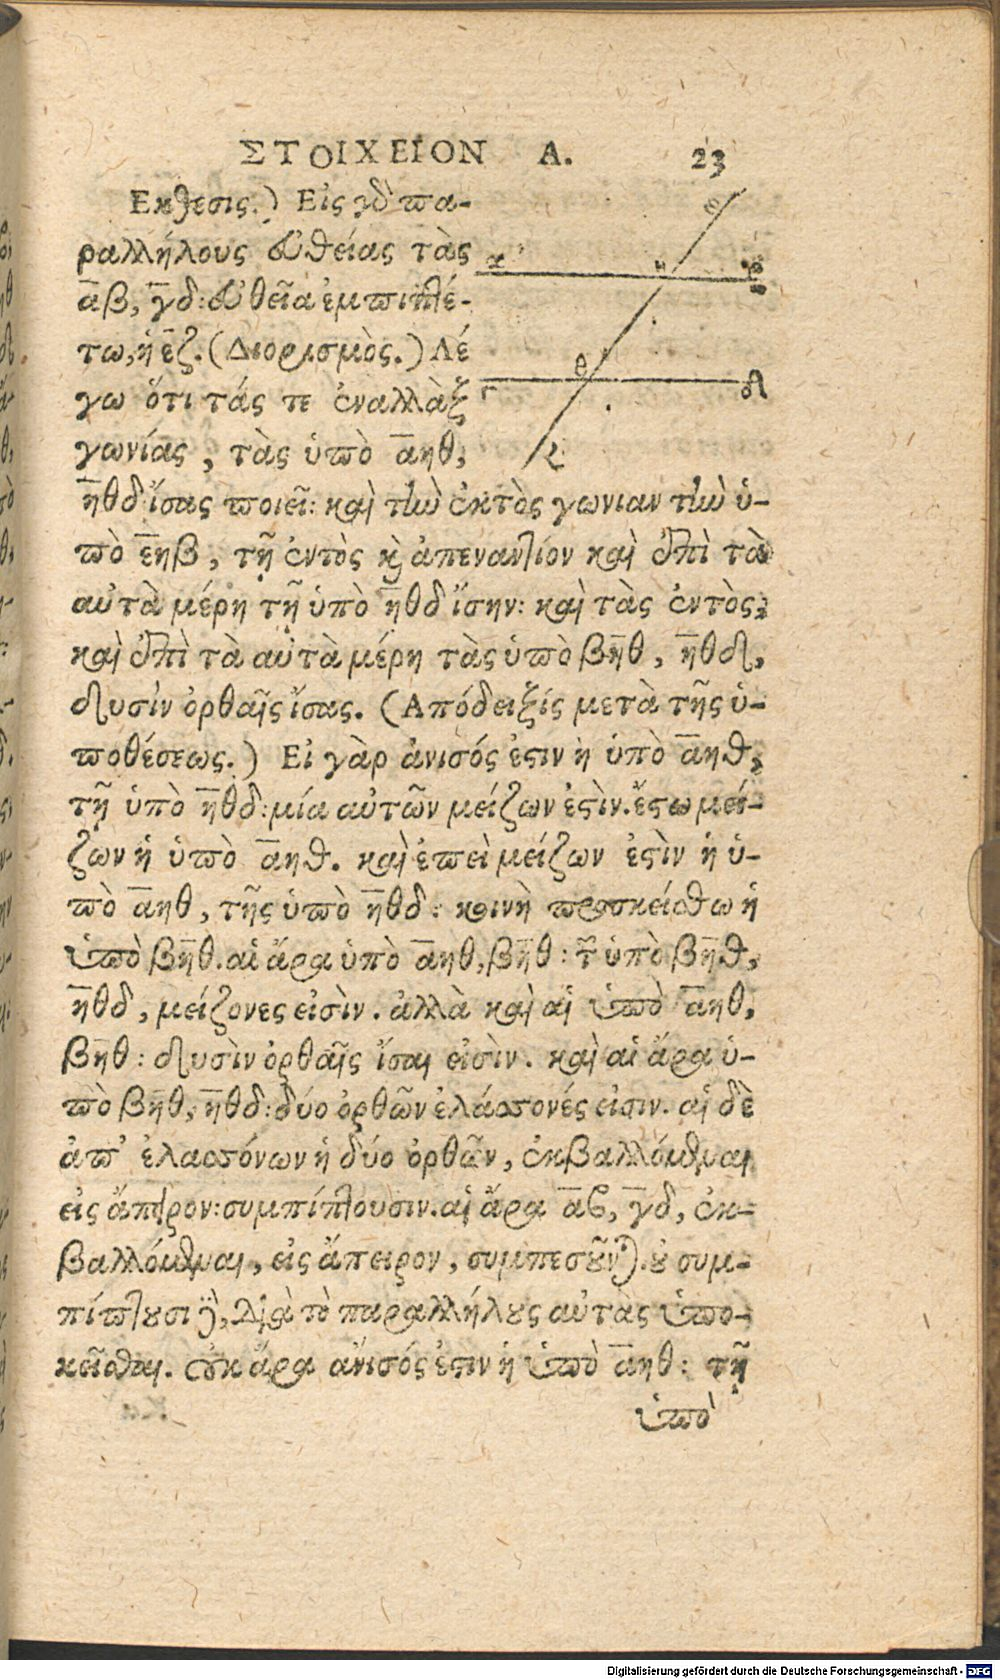 ΣΤΟΙΧΕΙΟΝ Α. 23
Εκθεσις.) Εἰς γδ̀ πα-
ραλλήλους εὐθείας τὰς
α̅β, γ̅δ: εὐθεῖα ἐμπιπτέ-
τω, ἡ ε̅ζ. (Διορισμὸς.) Λέ
γω ὅτι τάς τε ἐναλλὰξ
γωνίας, τὰς ὑπὸ α̅ηθ,
η̅θδ ἴσας ποιεῖ: καὶ τὴν ἐκτὸς γωνιαν τὴν ὑ-
πὸ ε̅ηβ, τῇ ἐντὸς καὶ ἀπεναντίον καὶ ἐπὶ τὰ
αὐτὰ μέρη τῇ ὑπὸ η̅θδ ἴσην: καὶ τὰς ἐντὸς
καὶ ἐπὶ τὰ αὐτὰ μέρη τὰς ὑπὸ βη̅θ, η̅θδ,
δυσὶν ὀρθαῖς ἴσας. (Απόδειξίς μετὰ τῆς ὑ-
ποθέσεως.) Εἰ γὰρ ἄνισός ἐστιν ἡ ὑπὸ α̅ηθ,
τῇ ὑπὸ η̅θδ: μία αὐτῶν μείζων ἐστὶν. ἔστω μεί-
ζων ἡ ὑπὸ α̅ηθ. καὶ ἐπεὶ μείζων ἐστὶν ἡ ὑ-
πὸ α̅ηθ, τῆς ὑπὸ η̅θδ: κοινὴ προσκείσθω ἡ
ὑπὸ βη̅θ. αἱ ἄρα ὑπὸ α̅ηθ, βη̅θ: τῶν ὑπὸ βη̅θ,
η̅θδ, μείζονες εἰσὶν. ἀλλὰ καὶ αἱ ὑπὸ α̅ηθ,
βη̅θ: δυσὶν ὀρθαῖς ἴσαι εἰσὶν. καὶ αἱ ἄρα ὑ-
πὸ βη̅θ, η̅θδ: δύο ὀρθῶν ἐλάσσονές εἰσιν. αἱ δὲ
ἀπ' ἐλασσόνων ἢ δύο ὀρθῶν, ἐκβαλλόμεναι
εἰς ἄπειρον: συμπίπτουσιν. αἱ ἄρα α̅β, γ̅δ, ἐκ-
βαλλόμεναι, εἰς ἄπειρον, συμπεσοῦνται. οὐ συμ-
πίπτουσι δὲ, διὰ τὸ παραλλήλους αὐτὰς ὑπο-
κεῖσθαι. οὐκ ἄρα ἄνισός ἐστιν ἡ ὑπὸ α̅ηθ: τῇ
ὑπὸ
α η β
γ θ δ
ε
ζ
Digitalisierung gefördert durch die Deutsche Forschungsgemeinschaft - DFG